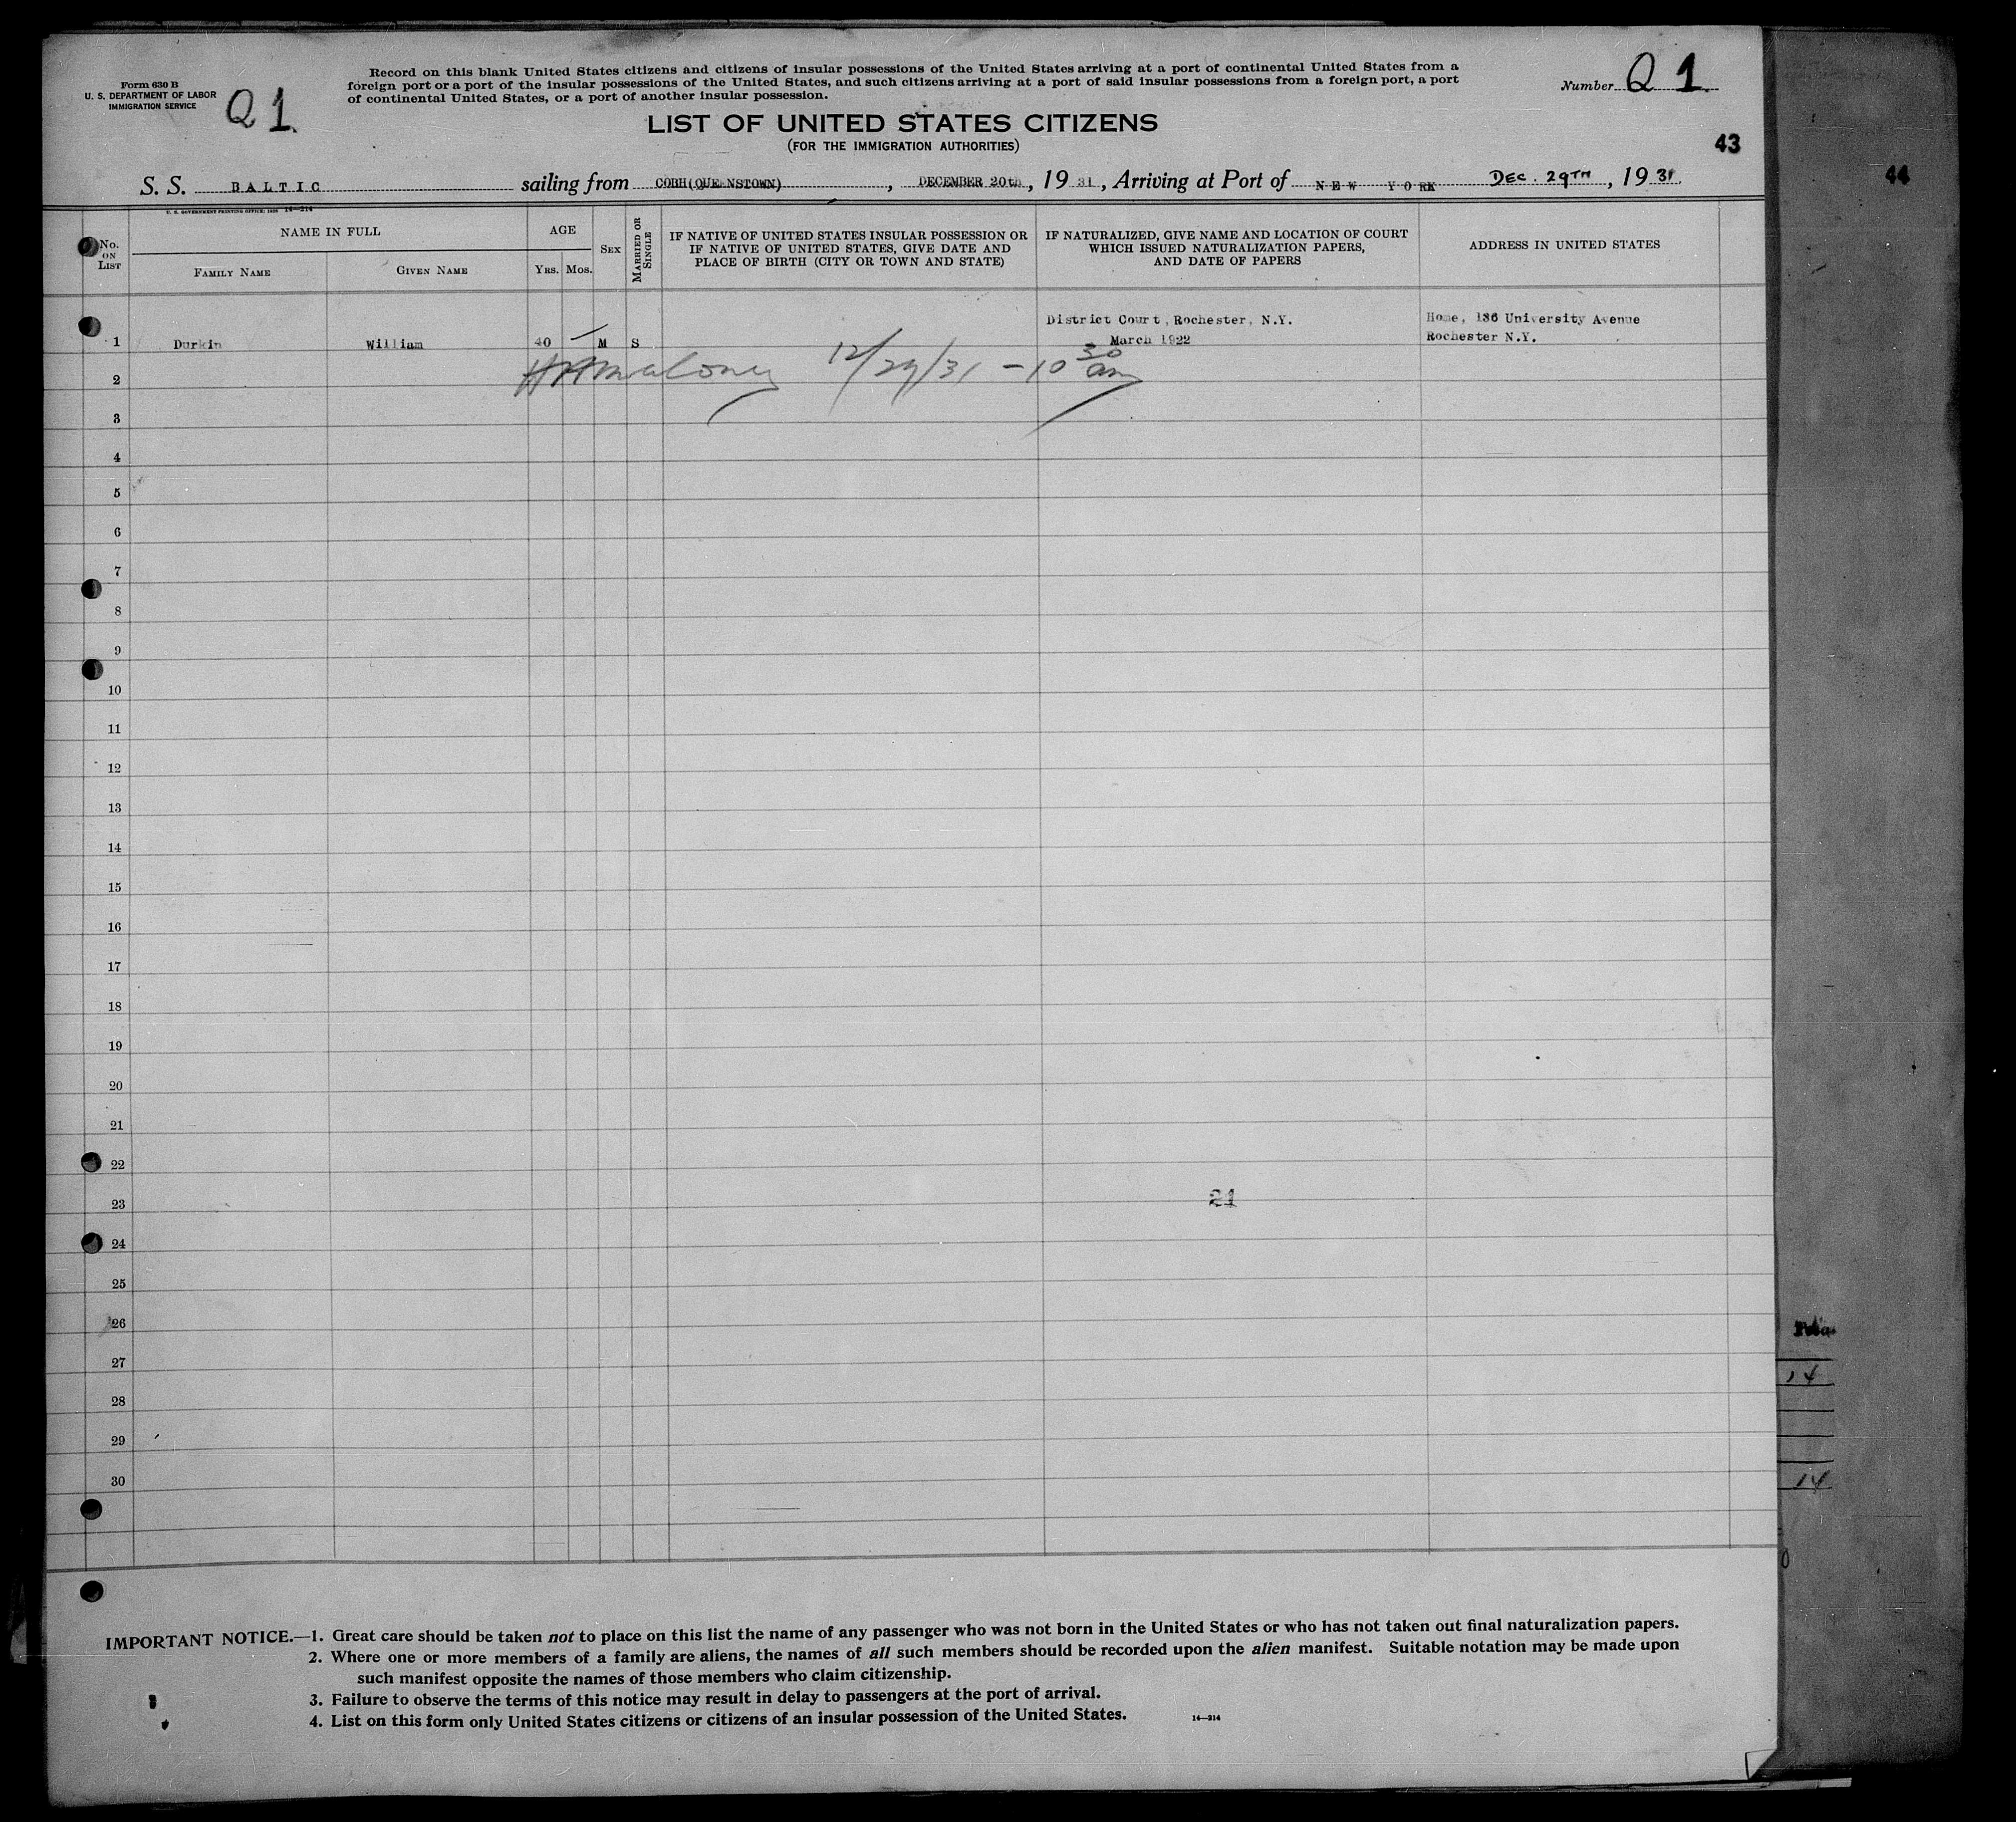 Form 630 B
U. S. DEPARTMENT OF LABOR
IMMIGRATION SERVICE
Q 1.
Record on this blank United States citizens and citizens of insular possessions of the United States arriving at a port of continental United States from a
foreign port or a port of the insular possessions of the United States, and such citizens arriving at a port of said insular possessions from a foreign port, a port
of continental United States, or a port of another insular possession.
Number Q 1
LIST OF UNITED STATES CITIZENS
(FOR THE IMMIGRATION AUTHORITIES)
43
44
S. S. BALTIC sailing from COBH(QUEENSTOWN), DECEMBER 20th, 1931, Arriving at Port of NEW YORK DEC. 29TH, 1931
U. S. GOVERNMENT PRINTING OFFICE: 14—214
No. ON LIST
NAME IN FULL
FAMILY NAME
GIVEN NAME
AGE
YRS. MOS.
SEX
MARRIED OR SINGLE
IF NATIVE OF UNITED STATES INSULAR POSSESSION OR
IF NATIVE OF UNITED STATES, GIVE DATE AND
PLACE OF BIRTH (CITY OR TOWN AND STATE)
IF NATURALIZED, GIVE NAME AND LOCATION OF COURT
WHICH ISSUED NATURALIZATION PAPERS,
AND DATE OF PAPERS
ADDRESS IN UNITED STATES
District Court, Rochester, N.Y. Home, 186 University Avenue
1 Durkin William 40 – M S March 1922 Rochester N.Y.
2 Maloney 12/29/31 – 10 30 am
3
4
5
6
7
8
9
10
11
12
13
14
15
16
17
18
19
20
21
22
23 21
24
25
26
27
28
29
30
14
14
IMPORTANT NOTICE.—1. Great care should be taken not to place on this list the name of any passenger who was not born in the United States or who has not taken out final naturalization papers.
2. Where one or more members of a family are aliens, the names of all such members should be recorded upon the alien manifest. Suitable notation may be made upon
such manifest opposite the names of those members who claim citizenship.
3. Failure to observe the terms of this notice may result in delay to passengers at the port of arrival.
4. List on this form only United States citizens or citizens of an insular possession of the United States.
14—214